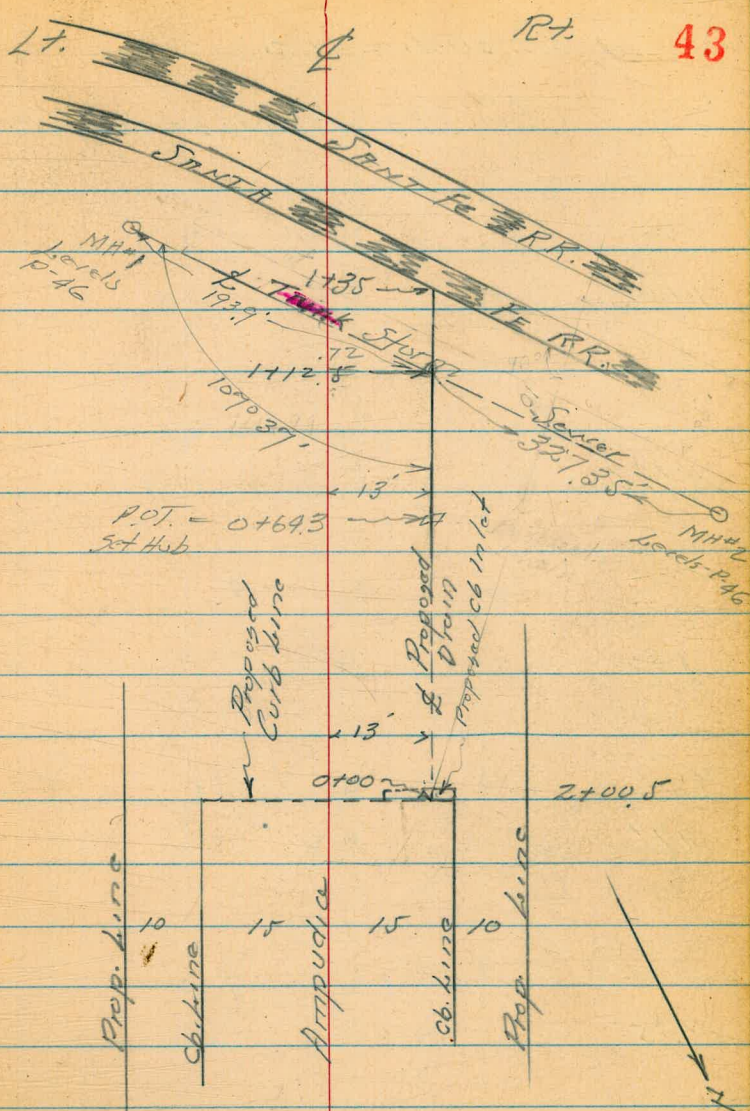 Lt.
℄
Rt.
43
SANTA Fe RR.
SANTA FE RR.
MH#1
Levels
P-46
℄ Trunk Storm Sewer
1+35
193.9'
1+12.8
109°39'
327.35'
MH#2
Levels-P-46
13'
P.O.T. = 0+64.3
Set Hub
Proposed
Curb Line
℄ Proposed
Drain
Proposed Cb Inlet
13'
0+00
2+00.5
Prop. Line
10
Cb. Line
15
Ampudia
15
Cb. Line
10
Prop. Line
N